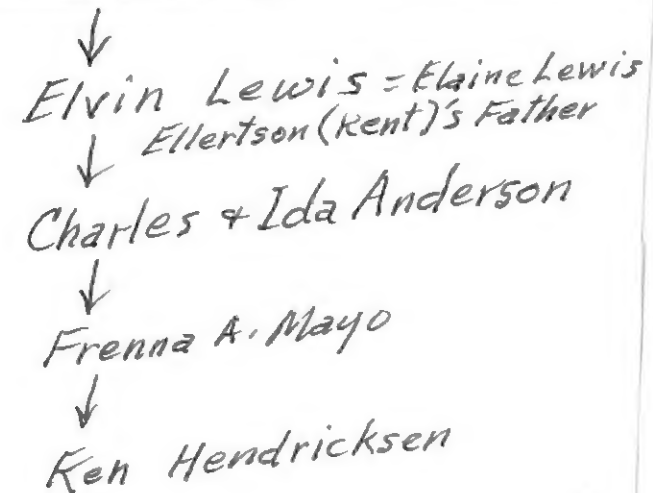 Elvin Lewis = Elaine Lewis
Ellertson (Kent)'s Father
Charles & Ida Anderson
Frenna A. Mayo
Ken Hendricksen